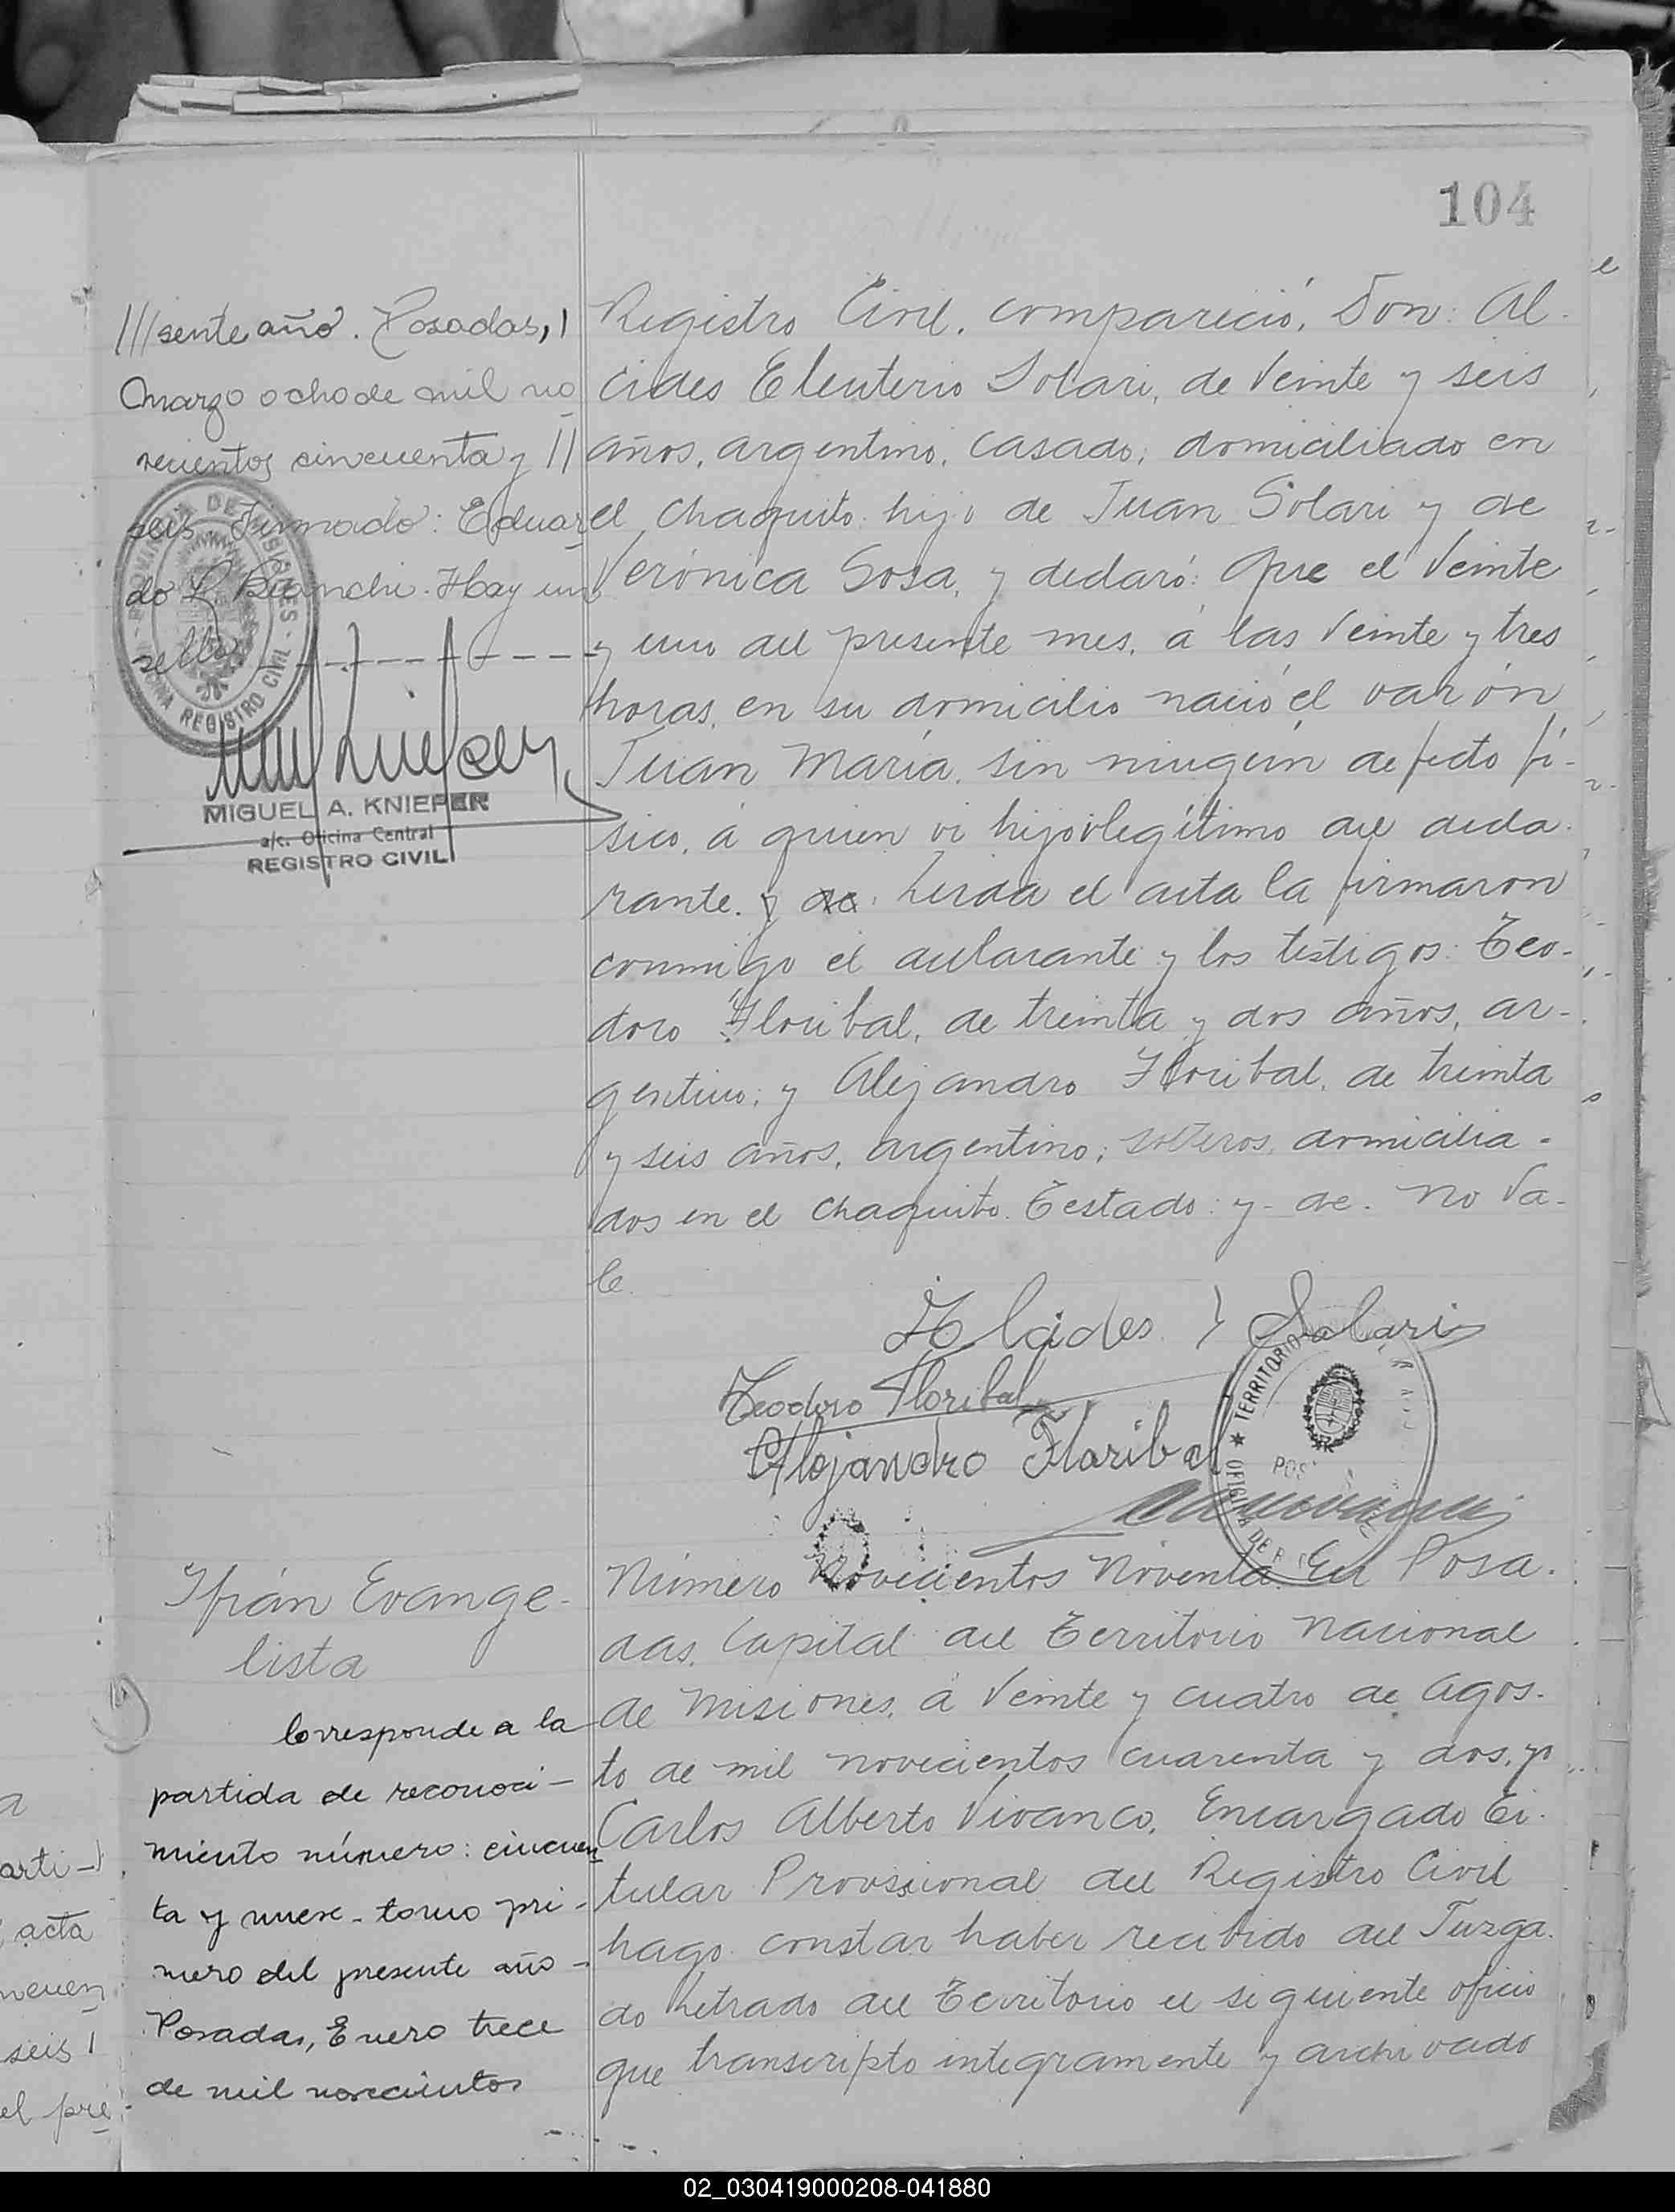 104
///sente año. Posadas,
marzo ocho de mil no
vecientos cincuenta y //
seis. Firmado: Eduar
do L. Bianchi. Hay un
sello.
PROVINCIA DE MISIONES
REGISTRO CIVIL
MIGUEL A. KNIEFER
a/c. Oficina Central
REGISTRO CIVIL
Registro Civil, compareció, Don: Al-
cides Eleuterio Solari, de veinte y seis
años, argentino, casado, domiciliado en
el Chaquito hijo de Juan Solari y de
Verónica Sosa, y declaró: Que el veinte
y uno del presente mes, á las veinte y tres
horas, en su domicilio nació el varón
Juan María, sin ningún defecto fí-
sico, á quien vi hijo legítimo del decla-
rante. y de. Leída el acta la firmaron
conmigo el declarante y los testigos: Teo-
doro Floribal, de treinta y dos años, ar-
gentino; y Alejandro Floribal, de treinta
y seis años, argentino; solteros, domicilia-
dos en el Chaquito. Testado: y- de. No va-
le.
Alcides Solari
Teodoro Floribal
Alejandro Floribal
TERRITORIO
OFICINA DE
Ifrán Evange-
lista
Corresponde a la
partida de reconoci-
miento número: cincuen
ta y nueve - tomo pri-
mero del presente año-
Posadas, Enero trece
de mil novecientos
Número Novecientos Noventa. En Posa-
das, Capital del Territorio Nacional
de Misiones, á veinte y cuatro de Agos-
to de mil novecientos cuarenta y dos, yo
Carlos Alberto Vivanco, Encargado Ti-
tular Provisional del Registro Civil
hago constar haber recibido del Juzga-
do Letrado del Territorio el siguiente oficio
que transcripto integramente y archivado
arti-
acta
seis
el pre
02_030419000208-041880